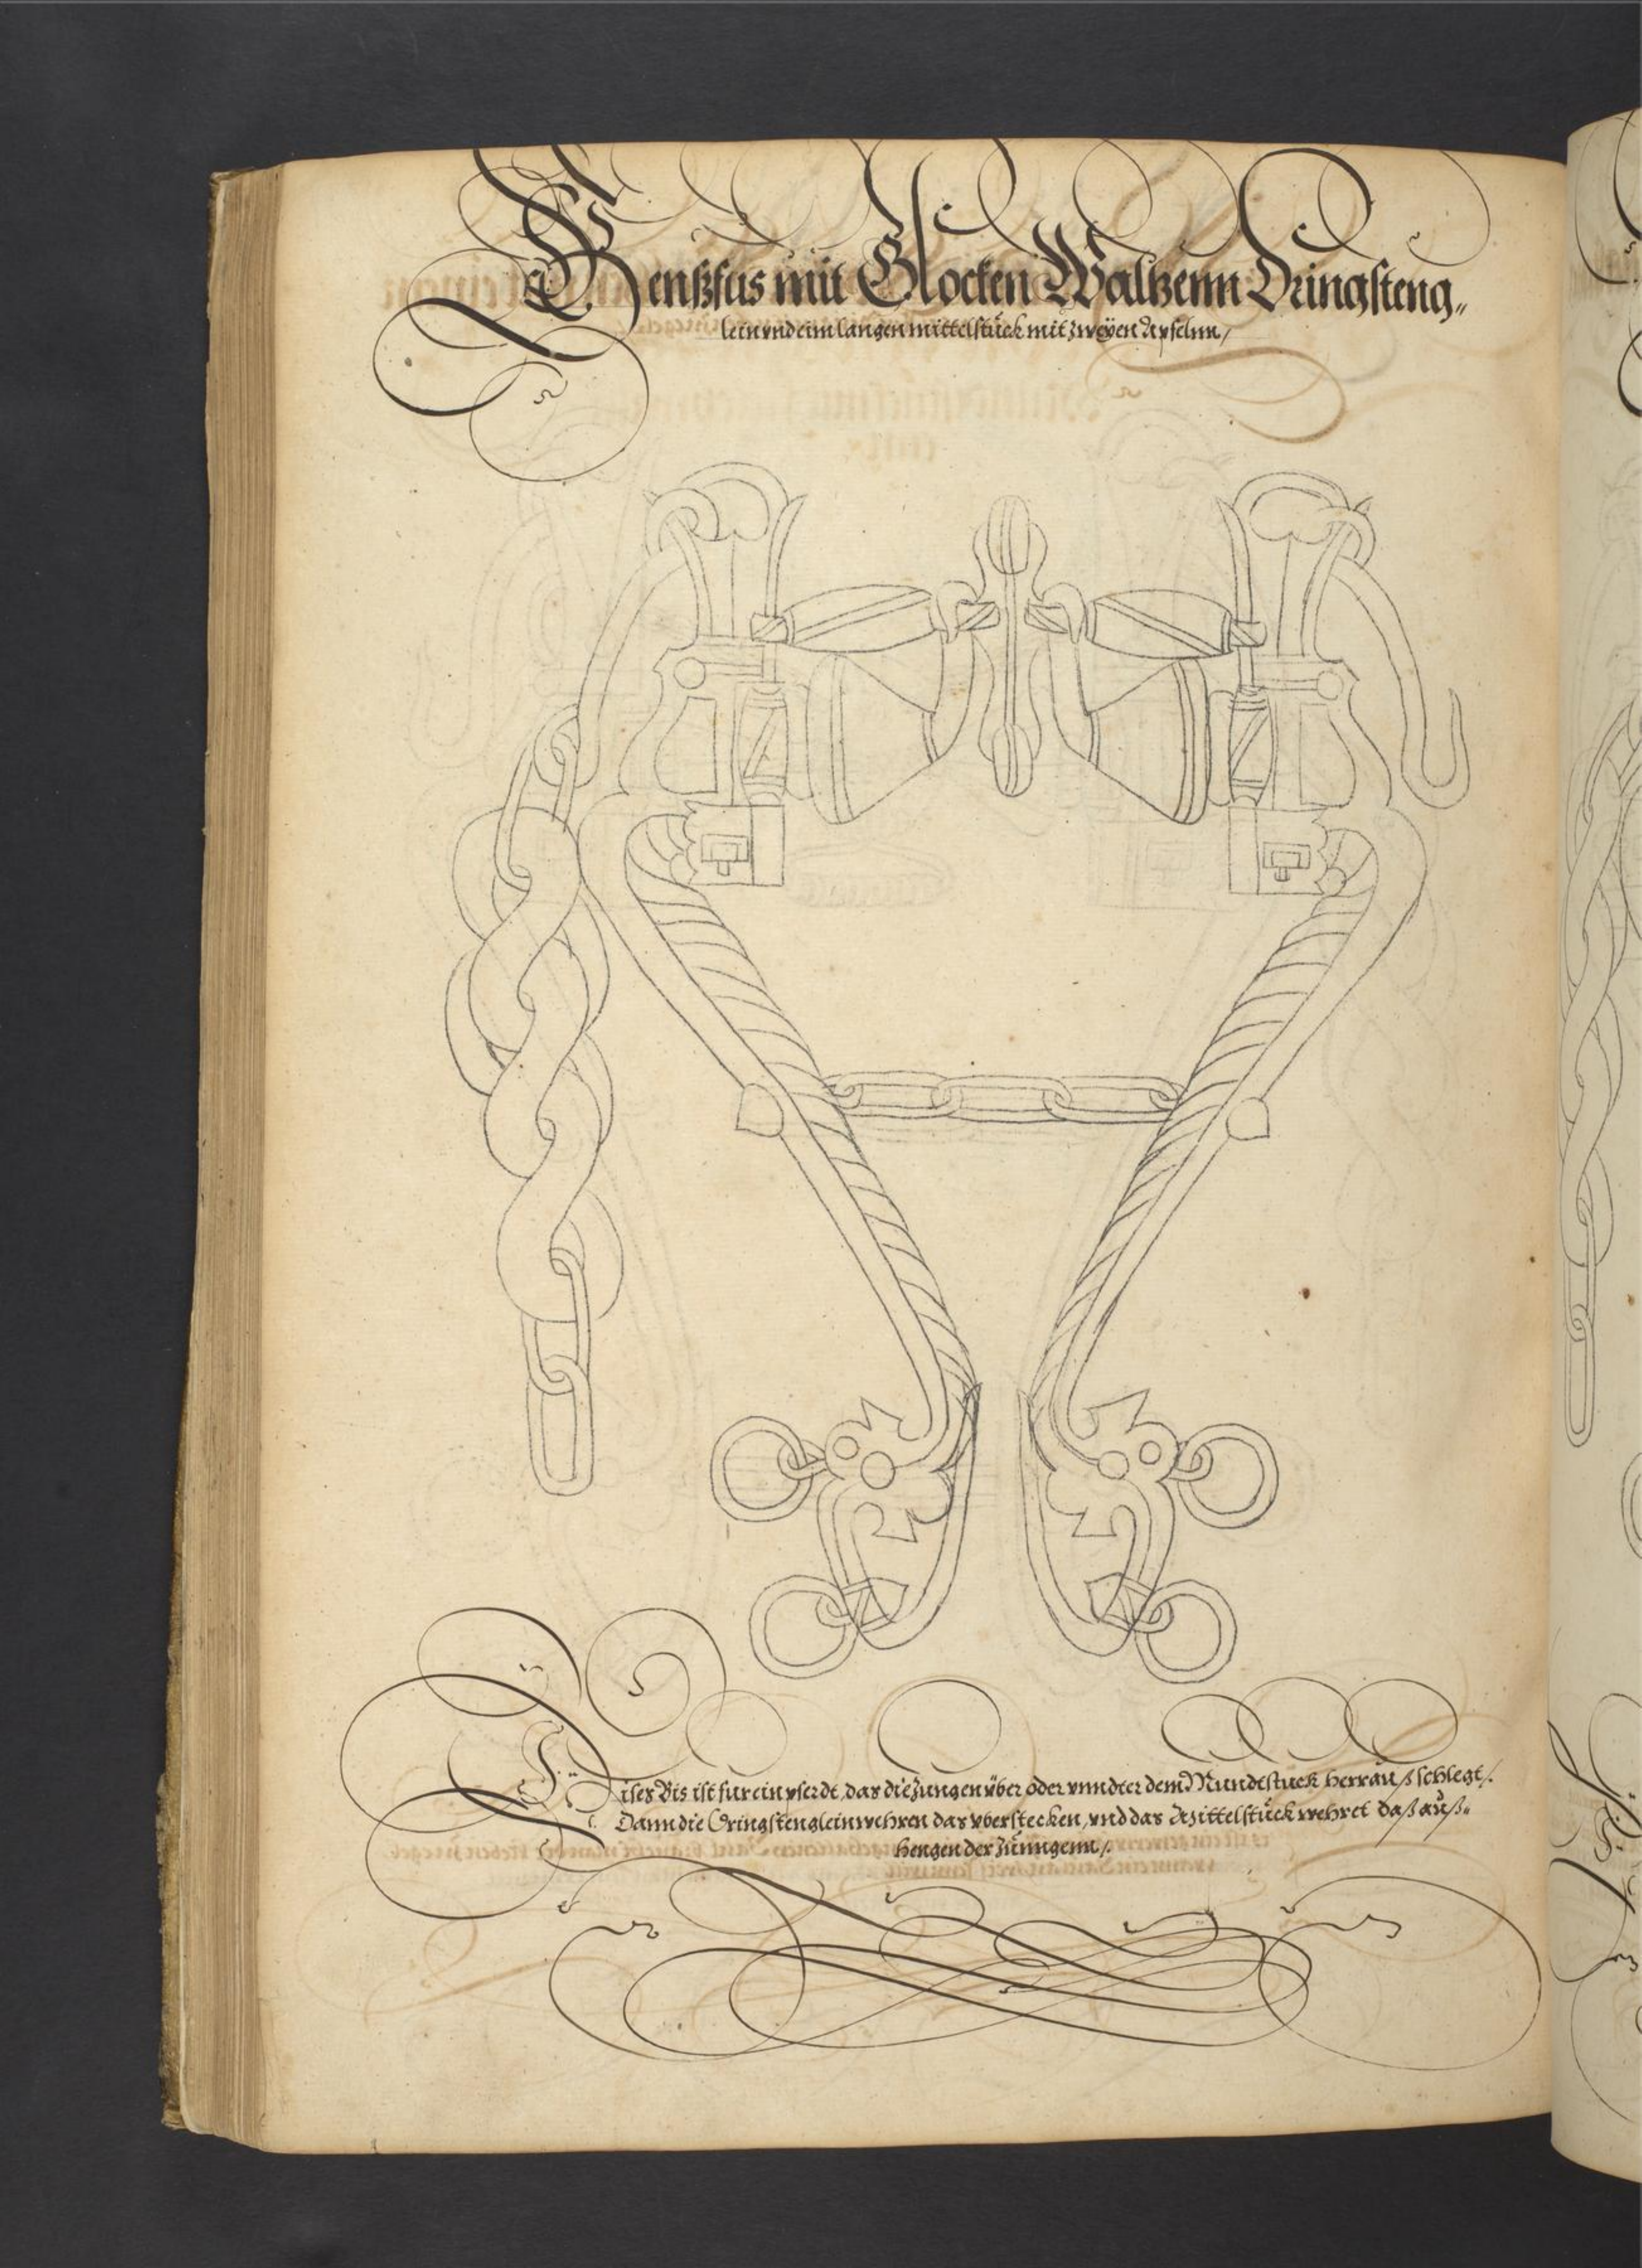 Genßfus mit Glocken Waltzenn Dringsteng„
lein vnd eim langen mittelstück mit zweÿen Äpfelnn /
Dises Bis ist fur ein pferdt, das die Zungen über oder vnndter dem Mundtstuck herrauß schlegt /.
Dann die Dringstenglein wehren das vberstecken, vnd das Mittelstück wehret daß auß„
hengen der Zünngenn /.